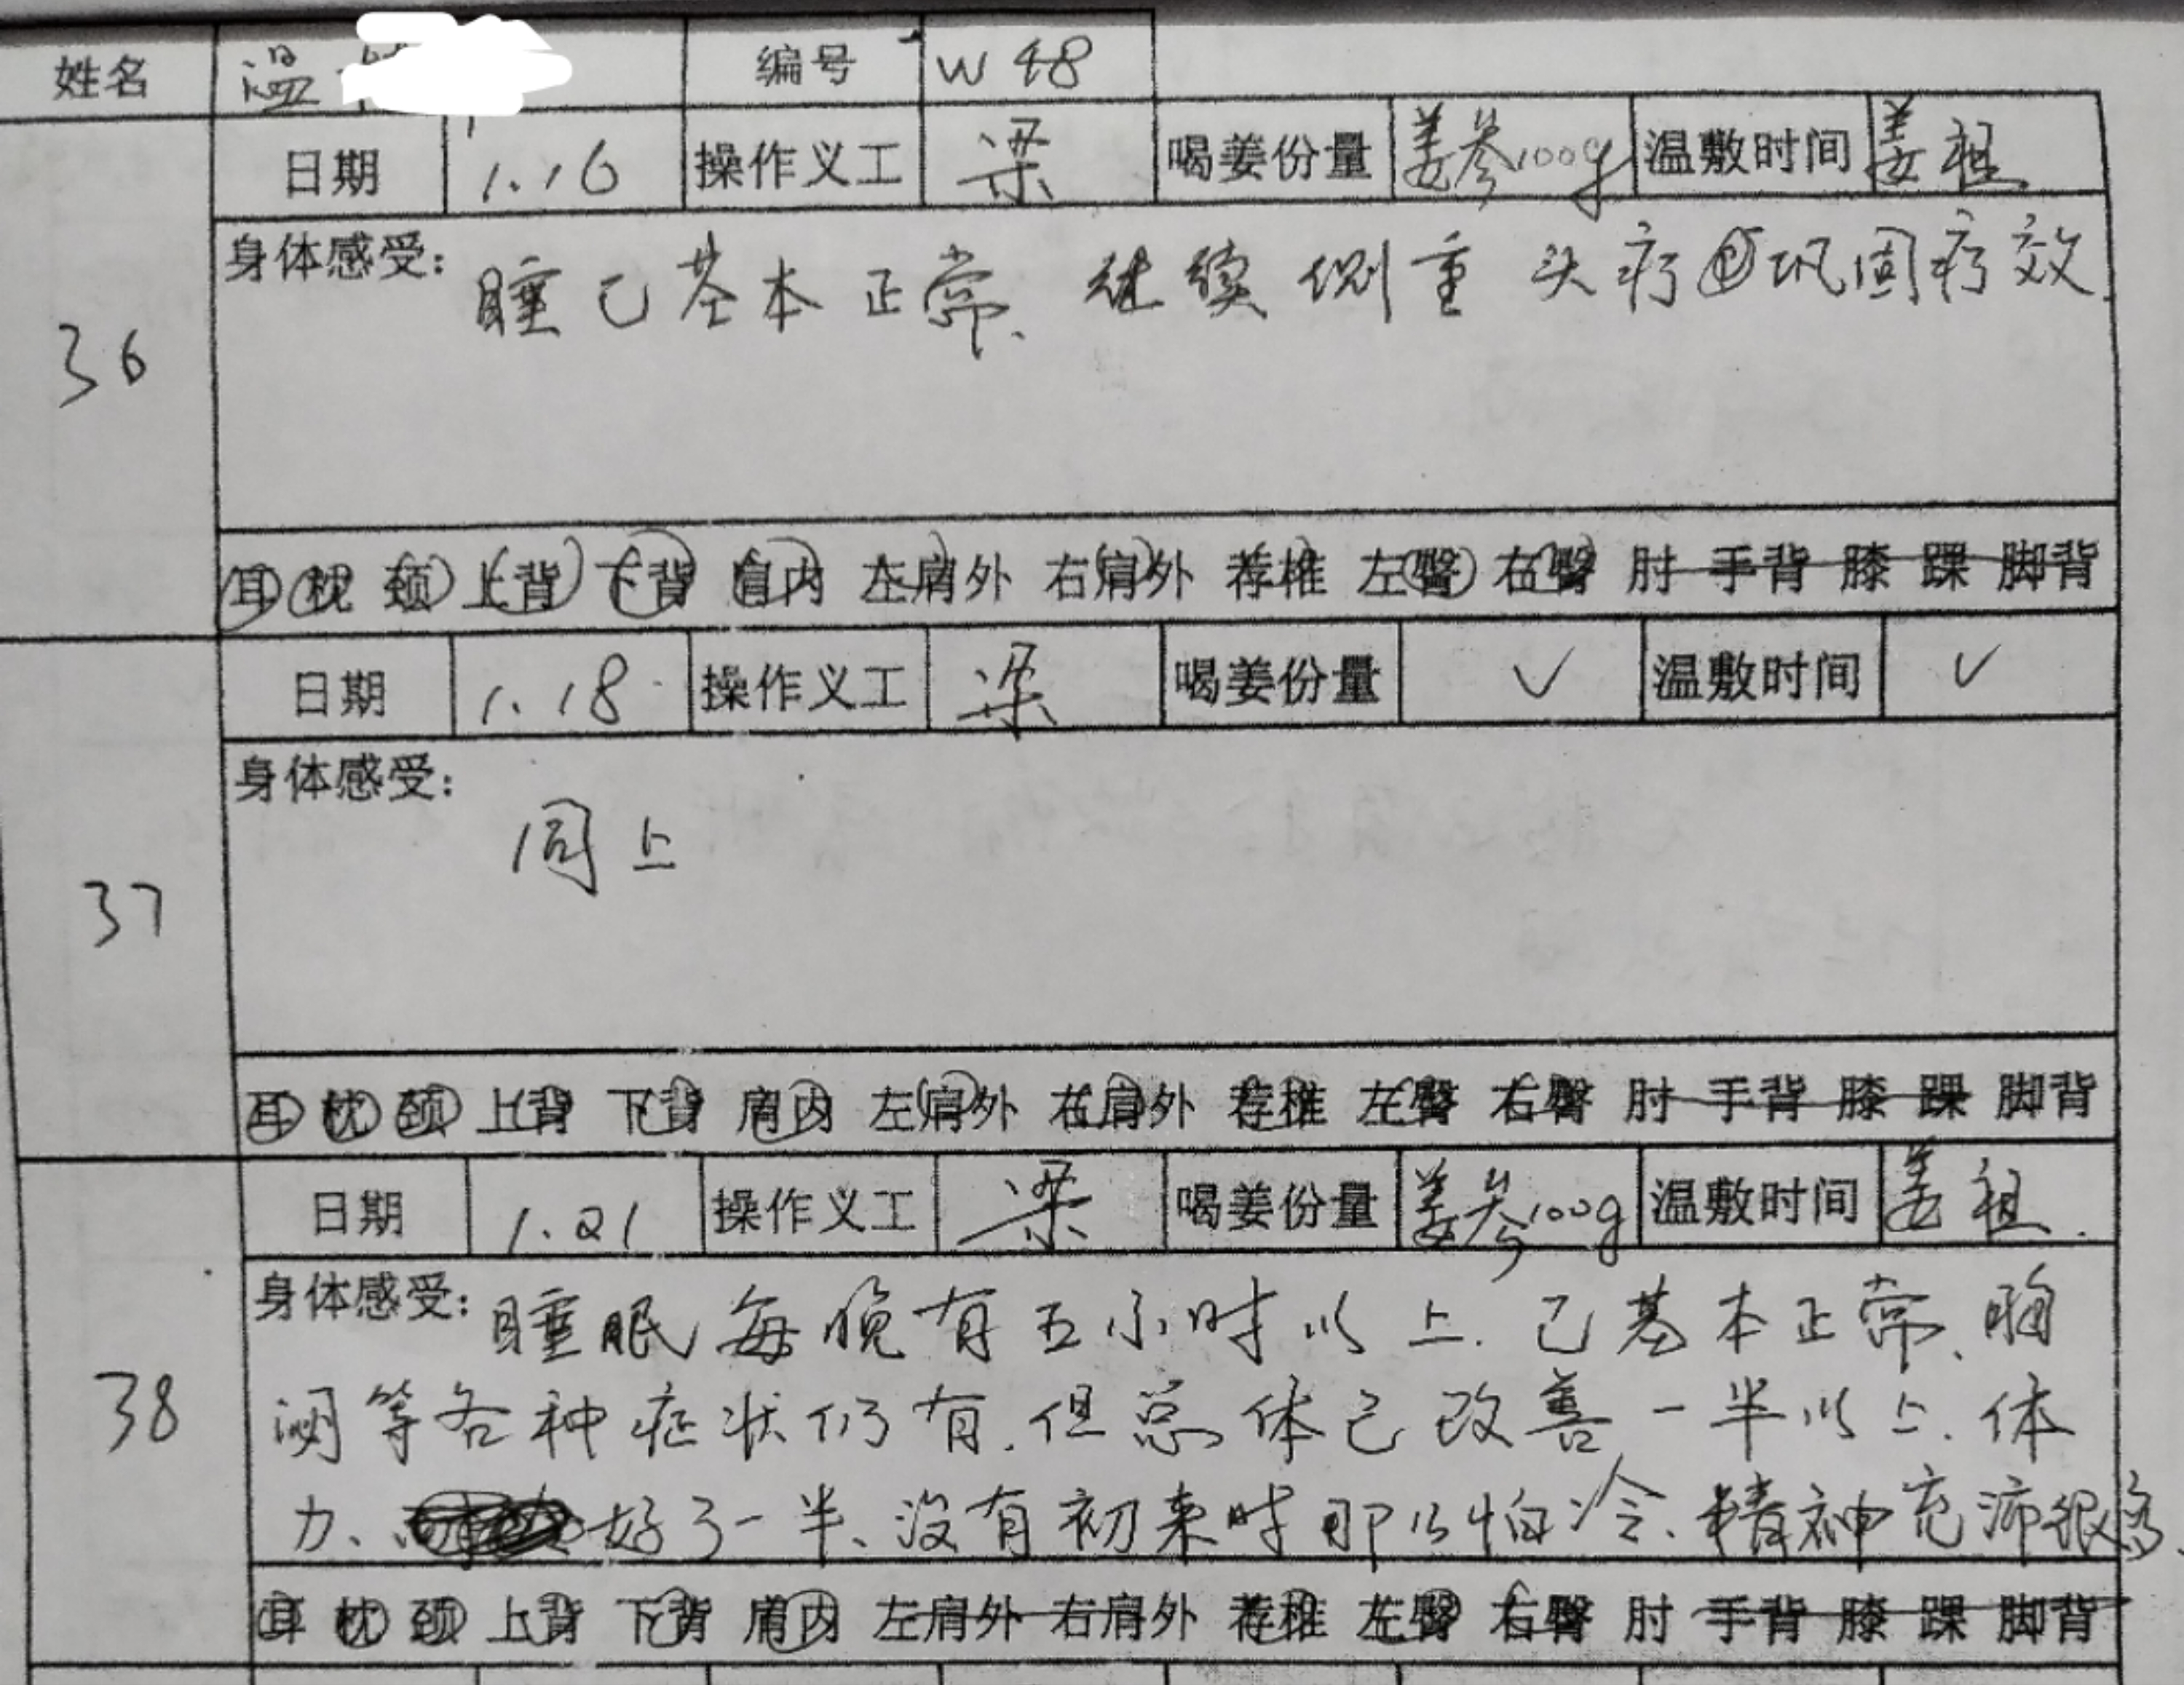 姓名 温 编号 W48
日期 1.16 操作义工 梁 喝姜份量 姜参100g 温敷时间 姜祖
36
身体感受: 睡已基本正常、继续侧重头疗 巩固疗效
耳 枕 颈 上背 下背 肩内 左肩外 右肩外 荐椎 左臀 右臀 肘 手背 膝 踝 脚背
日期 1.18 操作义工 梁 喝姜份量 ✓ 温敷时间 ✓
37
身体感受: 同上
耳 枕 颈 上背 下背 肩内 左肩外 右肩外 荐椎 左臀 右臀 肘 手背 膝 踝 脚背
日期 1.21 操作义工 梁 喝姜份量 姜参100g 温敷时间 姜祖.
38
身体感受: 睡眠每晚有五小时以上.已基本正常、胸
闷等各种症状仍有.但总体已改善一半以上.体
力、好了一半、没有初来时那么怕冷、精神充沛很多、
耳 枕 颈 上背 下背 肩内 左肩外 右肩外 荐椎 左臀 右臀 肘 手背 膝 踝 脚背